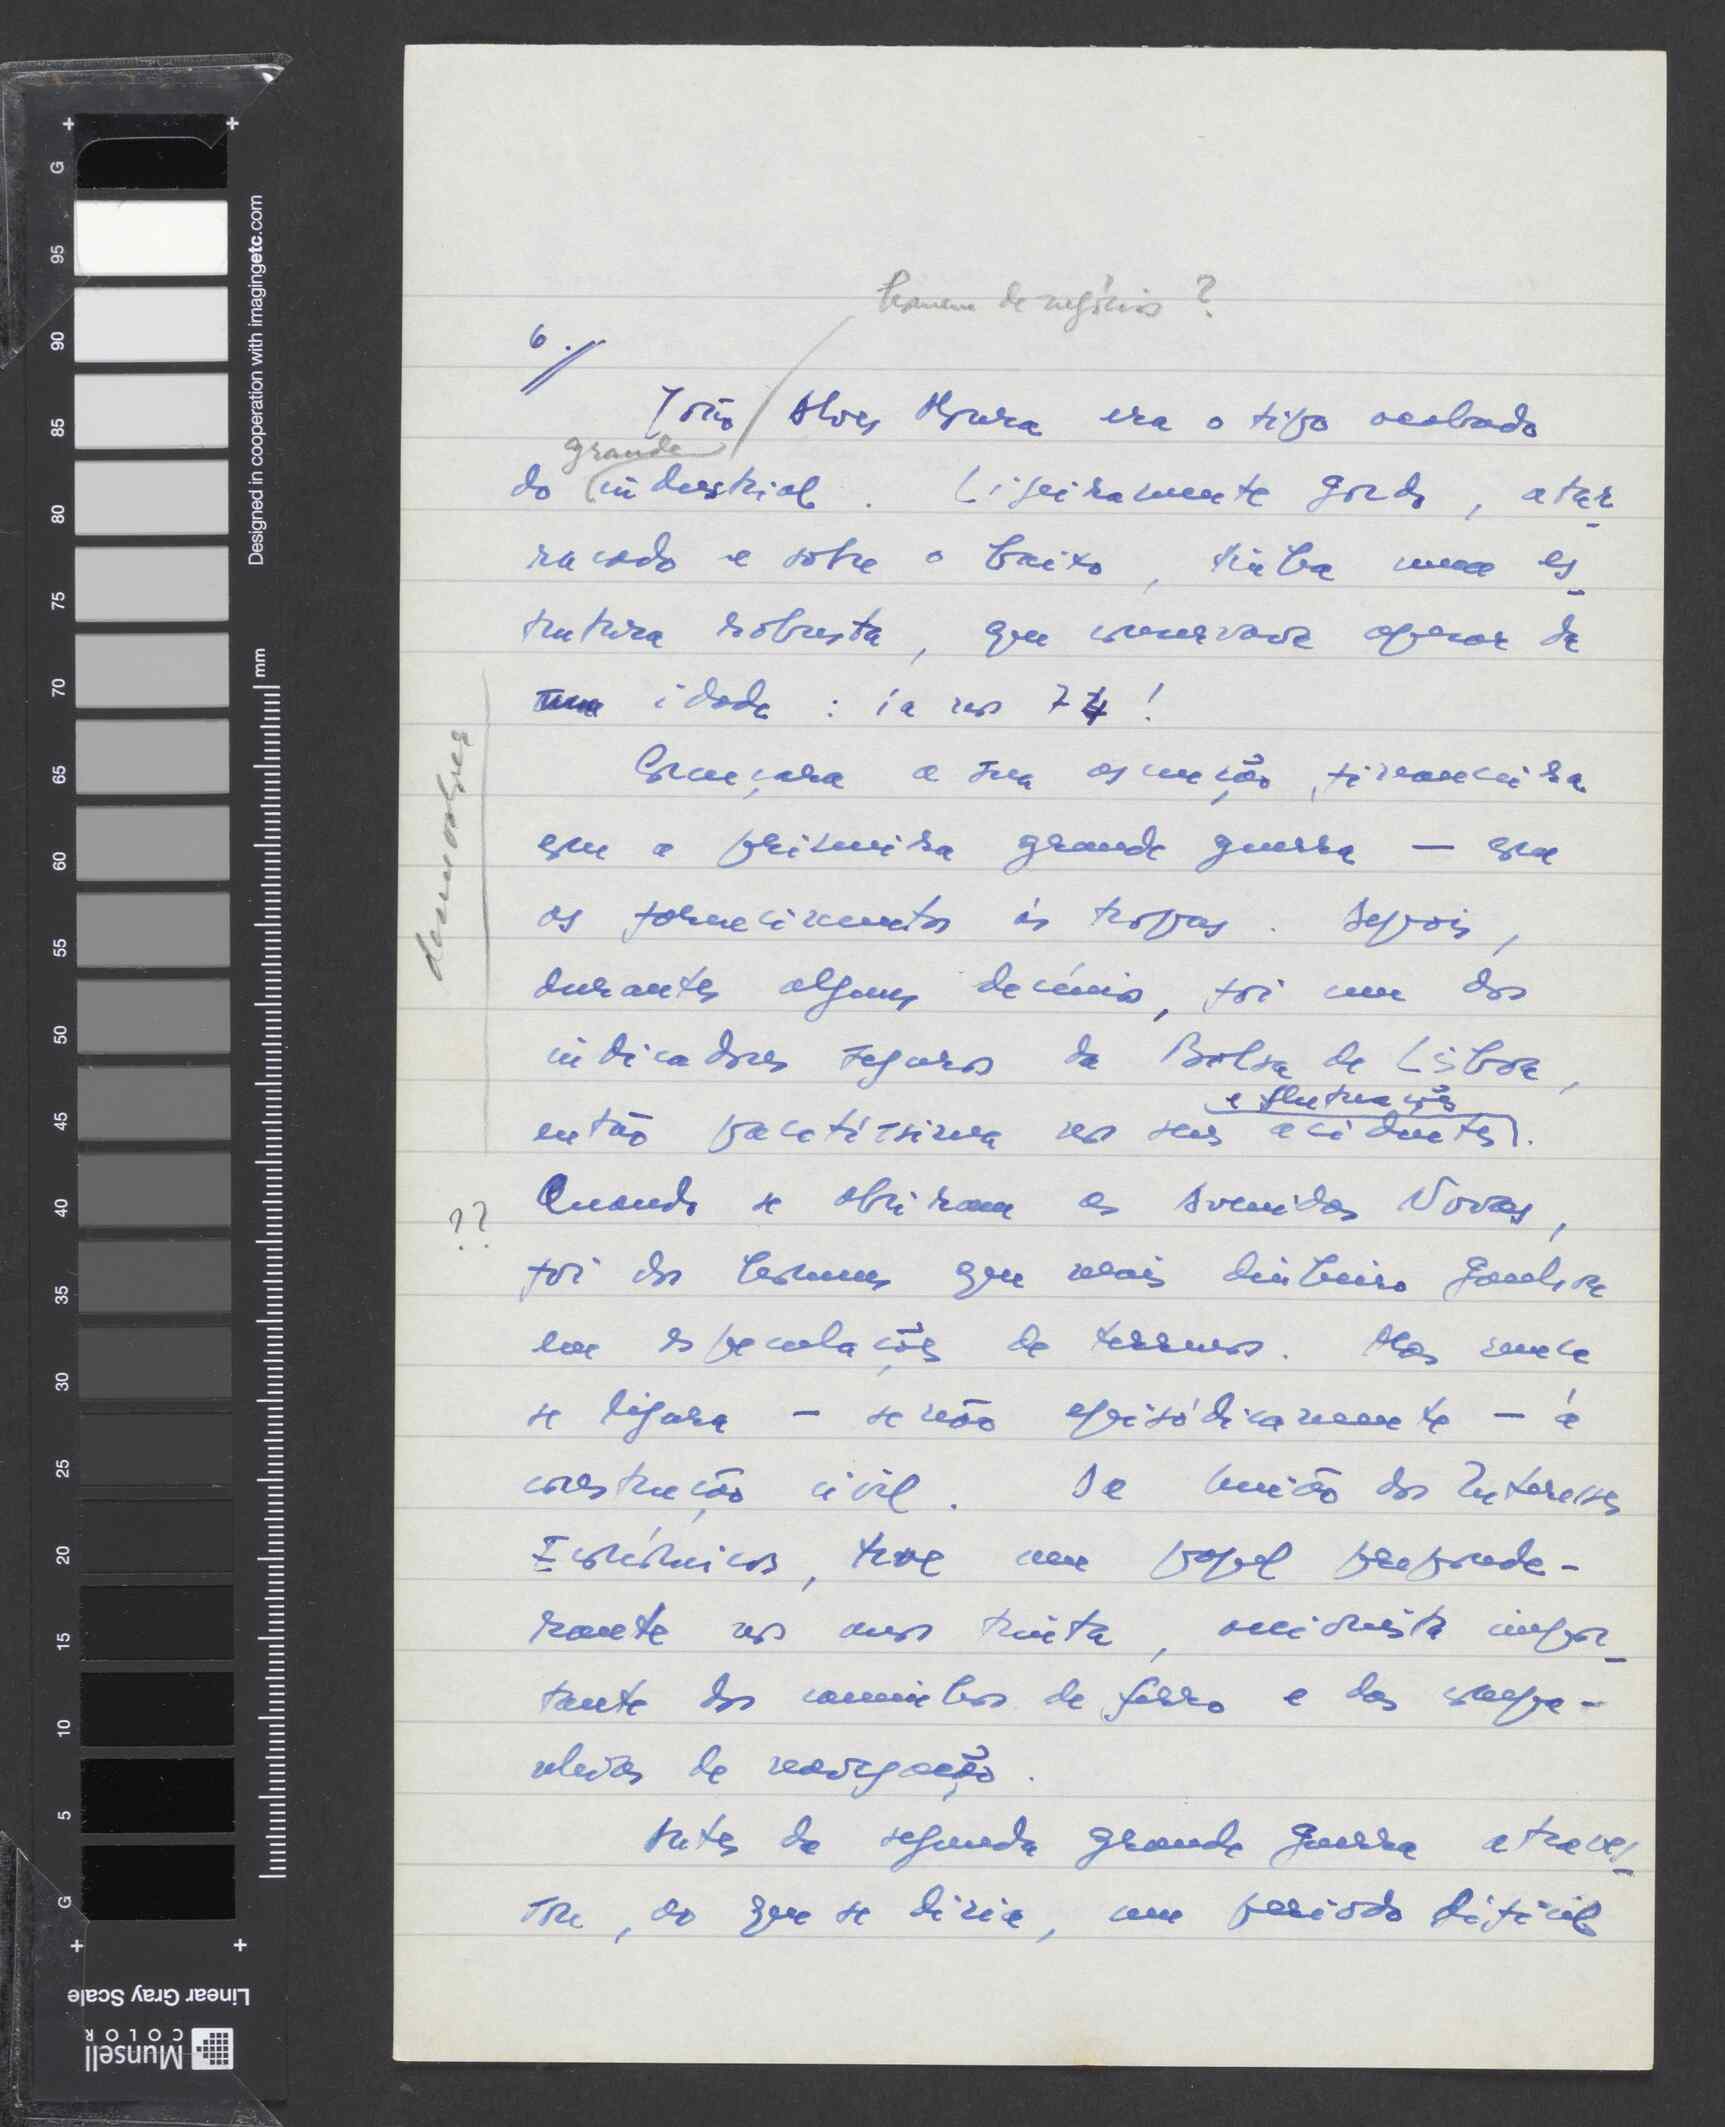 homem de negócios ?
6.//
João Alves Moura era o tipo acabado
grande
do industrial . Ligeiramente gordo , atar
racado e sobre o baixo , tinha uma es
trutura robusta , que conservava apesar da
sua idade : ia nos 74 !
Começara a sua ascenção financeira
com a primeira grande guerra — com
os fornecimentos às tropas . Depois ,
durantes alguns decénios , foi um dos
indicadores seguros da Bolsa de Lisboa ,
e flutuações
então pacatíssima nos seus acidentes .
??
Quando se abriram as Avenidas Novas ,
foi dos homens que mais dinheiro ganhara
em especulações de terrenos . Mas nunca
se ligara — senão episódicamente — à
construção civil . Da União dos Interesses
Económicos , teve um papel preponde-
rante nos anos trinta , accionista impor
tante dos caminhos de ferro e das compa-
nhias de navegação .
Antes da segunda grande guerra atraves
sou , ao que se dizia , um período difícil
G
95
90
85
80
75
70
65
60
55
50
45
40
35
30
25
20
15
10
5
G
mm
Designed in cooperation with imagingetc.com
Linear Gray Scale
Munsell
COLOR